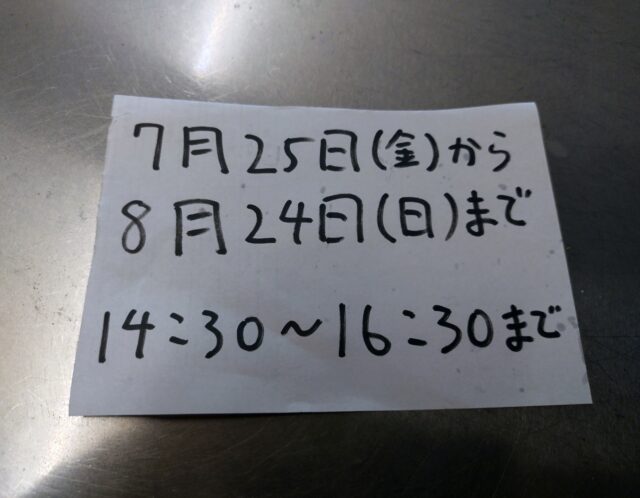 7月25日(金)から
8月24日(日)まで
14:30〜16:30まで